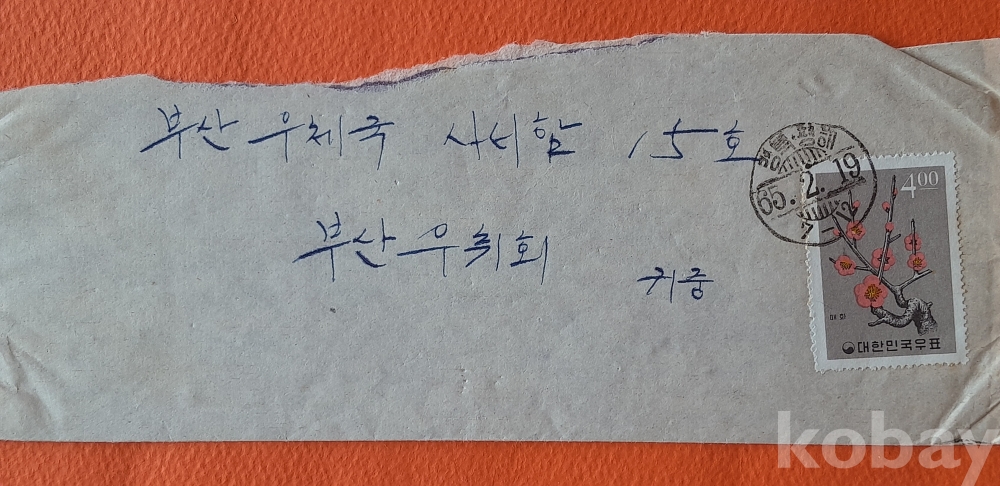 부산 우체국 사서함 15호
부산우취회
귀중
경북·영해
65. 2. 19
4 00
매화
대한민국우표
kobay